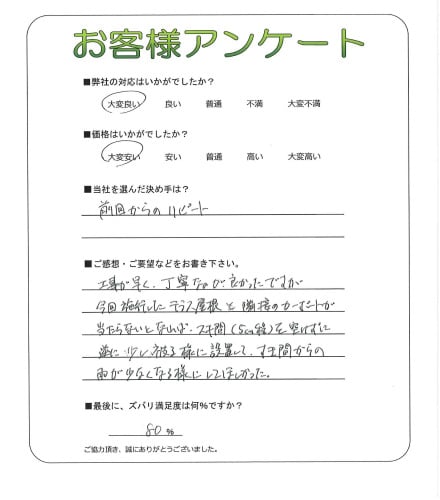 お客様アンケート
■弊社の対応はいかがでしたか？
大変良い 良い 普通 不満 大変不満
■価格はいかがでしたか？
大変安い 安い 普通 高い 大変高い
■当社を選んだ決め手は？
前回からのリピート
■ご感想・ご要望などをお書き下さい。
工事が早く、丁寧なのが良かったですが
今回施行したテラス屋根と隣接のカーポートが
当たらないとなれば、スキ間(5cm程)を空けずに
逆に少し被る様に設置して、すき間からの
雨が少なくなる様にしてほしかった。
■最後に、ズバリ満足度は何%ですか？
80%
ご協力頂き、誠にありがとうございました。